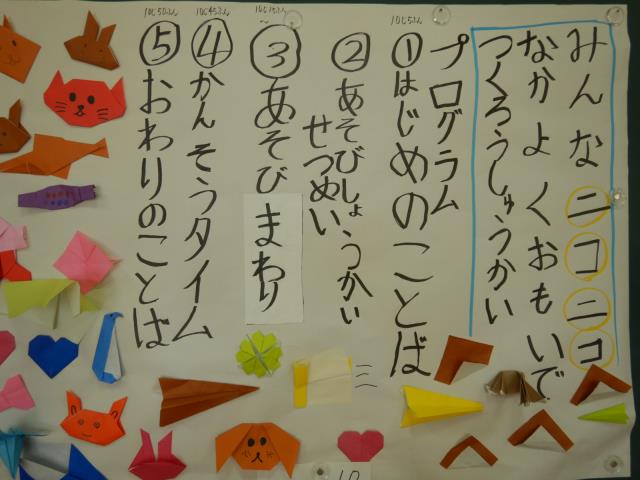 みんなニコニコ
なかよくおもいで
つくろうしゅうかい
プログラム
10じ5ふん
①はじめのことば
②あそびしょうかい
せつめい
10じ15ふん~
③あそびまわり
10じ45ふん
④かんそうタイム
10じ50ふん
⑤おわりのことば
10